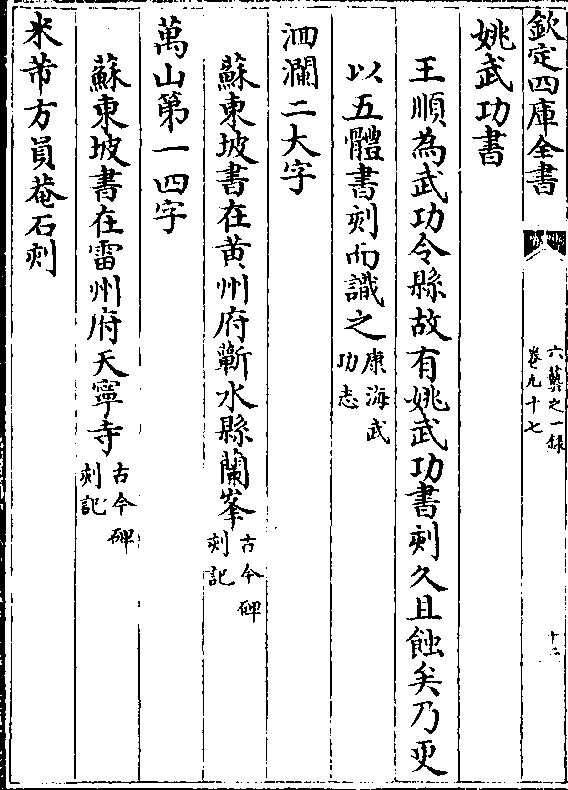 欽定四庫全書
六藝之一錄
卷九十七
十二
姚武功書
王順為武功令縣故有姚武功書刻久且蝕矣乃更
以五體書刻而識之康海武功志
洄瀾二大字
蘇東坡書在黄州府蘄水縣蘭峯古今碑刻記
萬山第一四字
蘇東坡書在雷州府天寧寺古今碑刻記
米芾方員菴石刻